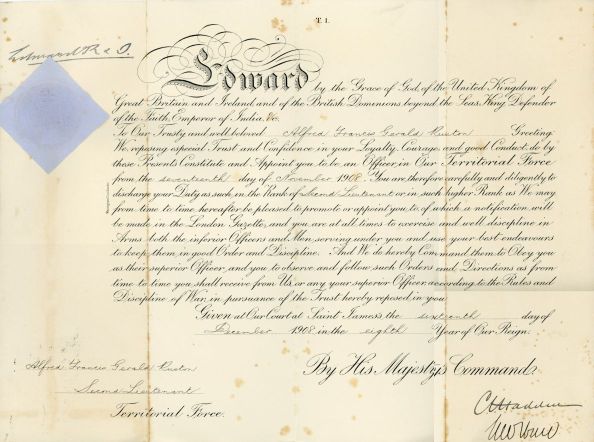 T. 1.
Edward R & I.
Edward by the Grace of God, of the United Kingdom of
Great Britain and Ireland and of the British Dominions beyond the Seas King Defender
of the Faith, Emperor of India, &c.
To Our Trusty and well beloved Alfred Francis Gerald Ruston Greeting.
We, reposing especial Trust and Confidence in your Loyalty, Courage, and good Conduct, do by
these Presents Constitute and Appoint you to be an Officer in Our Territorial Force
from the seventeenth day of November 1908. You are therefore carefully and diligently to
discharge your Duty as such in the Rank of Second Lieutenant or in such higher Rank as We may
from time to time hereafter be pleased to promote or appoint you to, of which a notification will
be made in the London Gazette, and you are at all times to exercise and well discipline in
Arms both the inferior Officers and Men serving under you and use your best endeavours
to keep them in good Order and Discipline. And We do hereby Command them to Obey you
as their superior Officer, and you to observe and follow such Orders and Directions as from
time to time you shall receive from Us, or any your superior Officer, according to the Rules and
Discipline of War, in pursuance of the Trust hereby reposed in you.
Given at Our Court at Saint James's the sixteenth day of
December 1908 in the eighth Year of Our Reign.
Alfred Francis Gerald Ruston
By His Majesty's Command.
Second Lieutenant
Territorial Force.